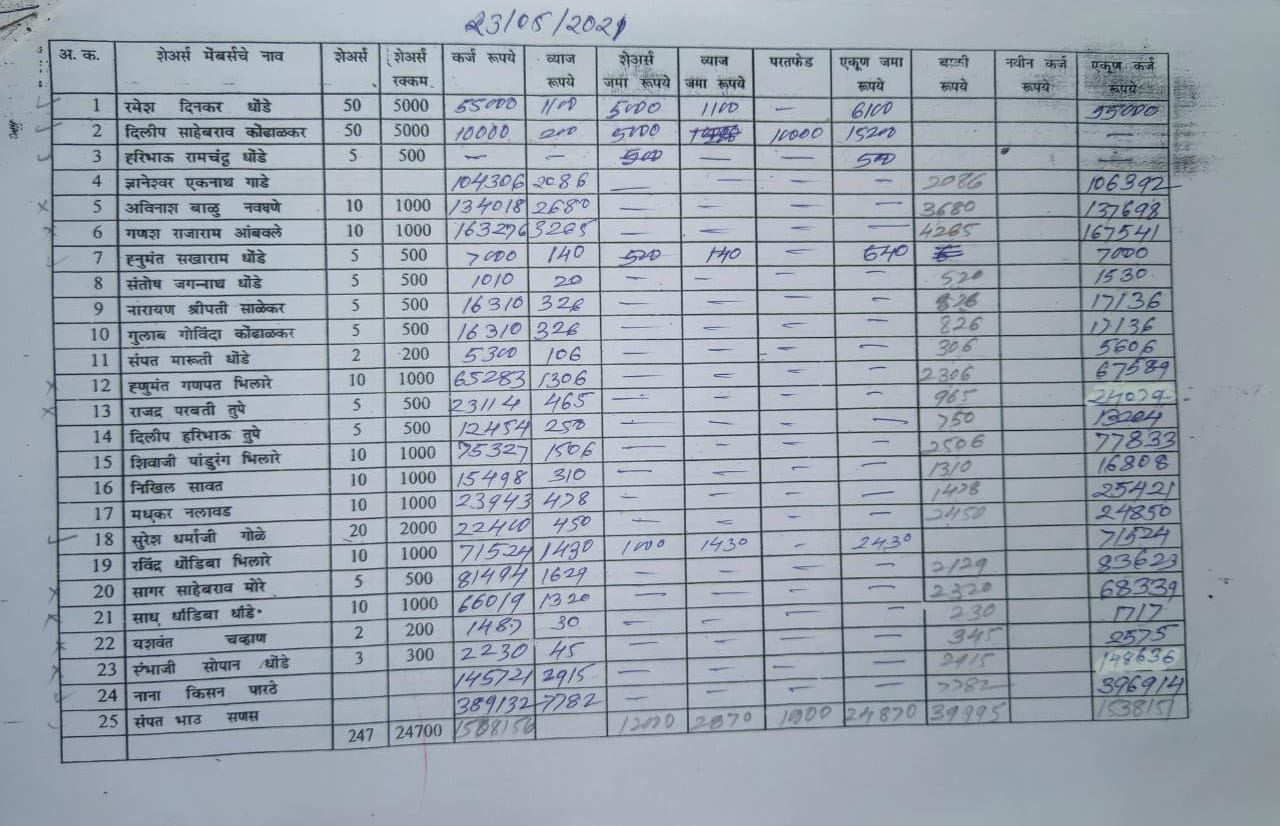 23/05/2021
अ. क. शेअर्स मेंबर्सचे नाव शेअर्स शेअर्स रक्कम कर्ज रूपये व्याज रूपये शेअर्स जमा रूपये व्याज जमा रूपये परतफेड एकूण जमा रूपये बाकी रूपये नवीन कर्ज रूपये एकूण कर्ज रूपये
1 रमेश दिनकर धोंडे 50 5000 55000 1100 5000 1100 — 6100 55000
2 दिलीप साहेबराव कोंढाळकर 50 5000 10000 200 5000 10000 15200 —
3 हरिभाऊ रामचंद्र धोंडे 5 500 — — 500 — — 500 —
4 ज्ञानेश्वर एकनाथ गाडे 104306 2086 — — — — 2086 106392
5 अविनाश बाळु नवघणे 10 1000 134018 2680 — — — — 3680 137698
6 गणश राजाराम आंबवले 10 1000 163276 3265 — — — — 4265 167541
7 हनुमंत सखाराम धोंडे 5 500 7000 140 500 140 — 640 7000
8 संतोष जगन्नाथ धोंडे 5 500 1010 20 — — — — 520 1530
9 नारायण श्रीपती साळेकर 5 500 16310 326 — — — — 826 17136
10 गुलाब गोविंदा कोंढाळकर 5 500 16310 326 — — — — 826 17136
11 संपत मारूती धोंडे 2 200 5300 106 — — — — 306 5606
12 हणुमंत गणपत भिलारे 10 1000 65283 1306 — — — — 2306 67589
13 राजद्र परबती तुपे 5 500 23114 465 — — — — 965 24079
14 दिलीप हरिभाऊ तुपे 5 500 12454 250 — — — — 750 13204
15 शिवाजी पांडुरंग भिलारे 10 1000 75327 1506 — — — — 2506 77833
16 निखिल सावत 10 1000 15498 310 — — — — 1310 16808
17 मधुकर नलावड 10 1000 23943 478 — — — — 1478 25421
18 सुरेश धर्माजी गोळे 20 2000 22400 450 — — — — 2450 24850
19 रविंद्र धोंडिबा भिलारे 10 1000 71524 1430 1000 1430 — 2430 71524
20 सागर साहेबराव मोरे 5 500 81494 1629 — — — — 2129 83623
21 साधु धोंडिबा धोंडे 10 1000 66019 1320 — — — — 2320 68339
22 यशवंत चव्हाण 2 200 1487 30 — — — — 230 1717
23 संभाजी सोपान धोंडे 3 300 2230 45 — — — — 345 2575
24 नाना किसन पारठे 145721 2915 — — — — 2915 148636
25 संपत भाउ सणस 389132 7782 — — — — 7782 396914
247 24700 12000 2870 10000 24870 39995